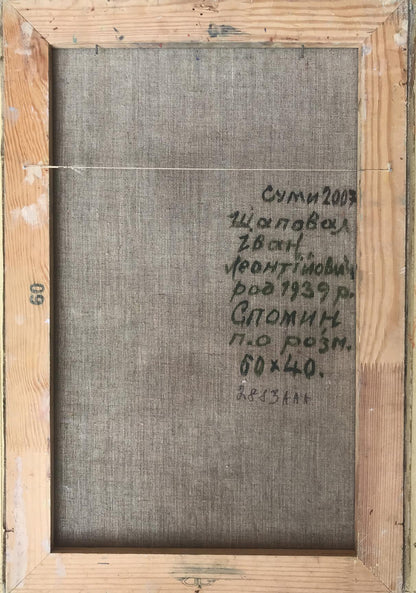 60
Суми 2007
Щаповал
Іван
Леонтійович
род 1939 р.
Спомин
п.о розм.
60×40.
2883AAA